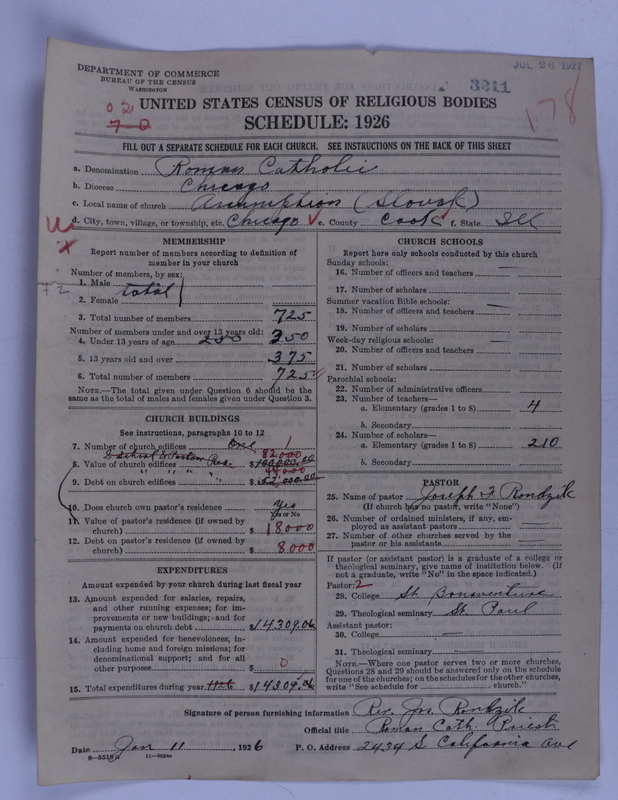 JUL 26 1927
DEPARTMENT OF COMMERCE
BUREAU OF THE CENSUS
WASHINGTON
3211
178
02
70
UNITED STATES CENSUS OF RELIGIOUS BODIES
SCHEDULE: 1926
FILL OUT A SEPARATE SCHEDULE FOR EACH CHURCH. SEE INSTRUCTIONS ON THE BACK OF THIS SHEET
a. Denomination Roman Catholic
b. Diocese Chicago
c. Local name of church Assumption (Slovak)
d. City, town, village, or township, etc. Chicago e. County Cook f. State Ill
MEMBERSHIP
Report number of members according to definition of
member in your church
Number of members, by sex:
1. Male
total
2. Female
3. Total number of members 725
Number of members under and over 13 years old:
4. Under 13 years of age 250 350
5. 13 years old and over 375
6. Total number of members 725
NOTE.—The total given under Question 6 should be
the same as the total of males and females given under Question 3.
CHURCH BUILDINGS
See instructions, paragraphs 10 to 12
7. Number of church edifices One 1
& School & Pastors Res. 82,000
8. Value of church edifices $100,000.00
44,000
9. Debt on church edifices $52,000.00
10. Does church own pastor's residence? Yes
Yes or No
11. Value of pastor's residence (if owned by
church) $18000
12. Debt on pastor's residence (if owned by
church) $8000
EXPENDITURES
Amount expended by your church during last fiscal year
13. Amount expended for salaries, repairs,
and other running expenses; for im-
provements or new buildings; and for
payments on church debt $14309.06
14. Amount expended for benevolences, in-
cluding home and foreign missions; for
denominational support; and for all
other purposes $ 0
15. Total expenditures during year $14309.06
CHURCH SCHOOLS
Report here only schools conducted by this church
Sunday schools:
16. Number of officers and teachers —
17. Number of scholars
Summer vacation Bible schools: —
18. Number of officers and teachers
19. Number of scholars
Week-day religious schools: —
20. Number of officers and teachers
21. Number of scholars
Parochial schools:
22. Number of administrative officers
23. Number of teachers—
a. Elementary (grades 1 to 8) 4
b. Secondary
24. Number of scholars—
a. Elementary (grades 1 to 8) 210
b. Secondary
PASTOR
25. Name of pastor Joseph F. Rondzik
(If church has no pastor, write "None")
26. Number of ordained ministers, if any, em-
ployed as assistant pastors
27. Number of other churches served by the
pastor or his assistants
If pastor (or assistant pastor) is a graduate of a college or
theological seminary, give name of institution below. (If
not a graduate, write "No" in the space indicated.)
Pastor: 2
28. College St. Bonaventure
29. Theological seminary St. Paul
Assistant pastor:
30. College —
31. Theological seminary —
NOTE.—Where one pastor serves two or more churches,
Questions 28 and 29 should be answered only on the schedule
for one of the churches; on the schedules for the other churches,
write "See schedule for church."
Signature of person furnishing information Rev. Jos Rondzik
Official title Roman Cath. Priest
Date Jan 11, 1926 P. O. Address 2434 S. California Ave
8-5518a 11-9094a